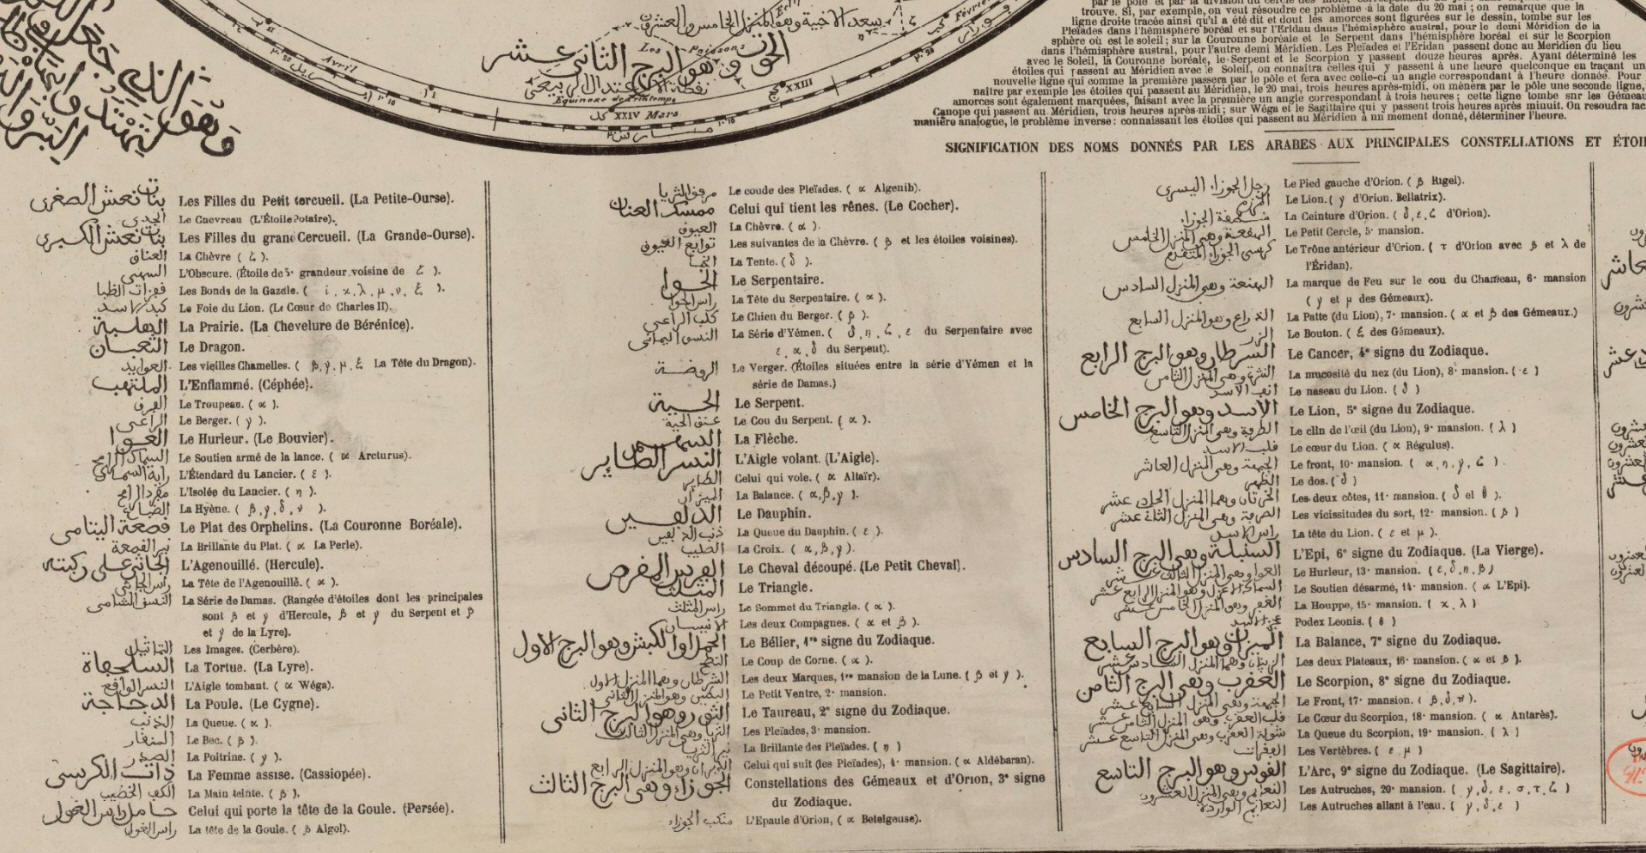 سعد الاخبية وهو المنزل الخامس والعشرون
Les Poissons
الحوت وهو البرج الثاني عشر
نقطة الاعتدال الربيعي
Equinoxe de Printemps
Avril
XXIII
XXIV Mars
مارس
Février
trouve. Si, par exemple, on veut résoudre ce problème à la date du 20 mai ; on remarque que la
ligne droite tracée ainsi qu'il a été dit et dont les amorces sont figurées sur le dessin, tombe sur les
Pleïades dans l'hémisphère boréal et sur l'Eridan dans l'hémisphère austral, pour le demi Méridien de la
sphère où est le soleil ; sur la Couronne boréale et le Serpent dans l'hémisphère boréal et sur le Scorpion
dans l'hémisphère austral, pour l'autre demi Méridien. Les Pleïades et l'Eridan passent donc au Meridien du lieu
avec le Soleil, la Couronne boréale, le Serpent et le Scorpion y passent douze heures après. Ayant déterminé les
étoiles qui passent au Méridien avec le Soleil, on connaîtra celles qui y passent à une heure quelconque en traçant un
nouvelle ligne qui comme la première passera par le pôle et fera avec celle-ci un angle correspondant à l'heure donnée. Pour
naître par exemple les étoiles qui passent au Méridien, le 20 mai, trois heures après-midi, on mènera par le pôle une seconde ligne,
amorces sont également marquées, faisant avec la première un angle correspondant à trois heures ; cette ligne tombe sur les Gémeau
Canope qui passent au Méridien, trois heures après-midi ; sur Wéga et le Sagittaire qui y passent trois heures après minuit. On resoudra
manière analogue, le problème inverse : connaissant les étoiles qui passent au Méridien à un moment donné, déterminer l'heure.
SIGNIFICATION DES NOMS DONNÉS PAR LES ARABES AUX PRINCIPALES CONSTELLATIONS ET ÉTOI
بنات نعش الصغرى Les Filles du Petit cercueil. (La Petite-Ourse).
الجدي Le Chevreau (L'Étoile Polaire).
بنات نعش الكبرى Les Filles du grand Cercueil. (La Grande-Ourse).
العناق La Chèvre ( ζ ).
السهى L'Obscure. (Étoile de 5e grandeur voisine de ζ ).
قفزات الظبا Les Bonds de la Gazelle. ( ι, κ, λ, μ, ν, ξ ).
كبد الاسد Le Foie du Lion. (Le Cœur de Charles II).
الهلبة La Prairie. (La Chevelure de Bérénice).
الثعبان Le Dragon.
العوايد Les vieilles Chamelles. ( β, γ, μ, ξ La Tête du Dragon).
الملتهب L'Enflammé. (Céphée).
الفرق Le Troupeau. ( α ).
الراعى Le Berger. ( γ ).
العوا Le Hurleur. (Le Bouvier).
السماك الرامح Le Soutien armé de la lance. ( α Arcturus).
راية السماك L'Étendard du Lancier. ( ε ).
مفرد الرامح L'Isolée du Lancier. ( η ).
الضباع La Hyène. ( β, γ, δ, ν ).
قصعة اليتامى Le Plat des Orphelins. (La Couronne Boréale).
نير القصعة La Brillante du Plat. ( α La Perle).
الجاثى على ركبته L'Agenouillé. (Hercule).
راس الجاثى La Tête de l'Agenouillé. ( α ).
النسق الشامى La Série de Damas. (Rangée d'étoiles dont les principales
sont β et γ d'Hercule, β et γ du Serpent et β
et γ de la Lyre).
التماثيل Les Images. (Cerbère).
السلحفاة La Tortue. (La Lyre).
النسر الواقع L'Aigle tombant. ( α Wéga).
الدجاجة La Poule. (Le Cygne).
الذنب La Queue. ( α ).
المنقار Le Bec. ( β ).
الصدر La Poitrine. ( γ ).
ذات الكرسى La Femme assise. (Cassiopée).
الكف الخضيب La Main teinte. ( β ).
حامل راس الغول Celui qui porte la tête de la Goule. (Persée).
راس الغول La tête de la Goule. ( β Algol).
مرفق الثريا Le coude des Pleïades. ( α Algenib).
ممسك العنان Celui qui tient les rênes. (Le Cocher).
العيوق La Chèvre. ( α ).
توابع العيوق Les suivantes de la Chèvre. ( β et les étoiles voisines).
الخبا La Tente. ( δ ).
الحوا Le Serpentaire.
راس الحوا La Tête du Serpentaire. ( α ).
كلب الراعى Le Chien du Berger. ( β ).
النسق اليمانى La Série d'Yémen. ( δ, η, ζ, ε du Serpentaire avec
ε, α, δ du Serpent).
الروضة Le Verger. (Étoiles situées entre la série d'Yémen et la
série de Damas.)
الحية Le Serpent.
عنق الحية Le Cou du Serpent. ( α ).
السهم La Flèche.
النسر الطاير L'Aigle volant. (L'Aigle).
الطاير Celui qui vole. ( α Altaïr).
الميزان La Balance. ( α, β, γ ).
الدلفين Le Dauphin.
ذنب الدلفين La Queue du Dauphin. ( ε ).
الصليب La Croix. ( α, β, γ ).
الفرس Le Cheval découpé. (Le Petit Cheval).
المثلث Le Triangle.
راس المثلث Le Sommet du Triangle. ( α ).
الانيسان Les deux Compagnes. ( α et β ).
الحمل او الكبش وهو البرج الاول Le Bélier, 1re signe du Zodiaque.
النطح Le Coup de Corne. ( α ).
الشرطان وهما المنزل الاول Les deux Marques, 1re mansion de la Lune. ( β et γ ).
البطين وهو المنزل الثانى Le Petit Ventre, 2e mansion.
الثور وهو البرج الثانى Le Taureau, 2e signe du Zodiaque.
الثريا وهى المنزل الثالث Les Pleïades, 3e mansion.
نير الثريا La Brillante des Pleïades. ( η )
الدبران وهو المنزل الرابع Celui qui suit (les Pleïades), 4e mansion. ( α Aldébaran).
الجوزاء وهى البرج الثالث Constellations des Gémeaux et d'Orion, 3e signe
du Zodiaque.
منكب الجوزاء L'Epaule d'Orion, ( α Betelgeuse).
رجل الجوزاء اليسرى Le Pied gauche d'Orion. ( β Rigel).
المرزم Le Lion. ( γ d'Orion. Bellatrix).
منطقة الجوزا La Ceinture d'Orion. ( δ, ε, ζ d'Orion).
الهقعة وهى المنزل الخامس Le Petit Cercle, 5e mansion.
كرسى الجوزا المتقدم Le Trône antérieur d'Orion. ( τ d'Orion avec β et λ de
l'Éridan).
الهنعة وهى المنزل السادس La marque de Feu sur le cou du Chameau, 6e mansion
( γ et μ des Gémeaux).
الذراع وهو المنزل السابع La Patte (du Lion), 7e mansion. ( α et β des Gémeaux.)
الزر Le Bouton. ( ξ des Gémeaux).
السرطان وهو البرج الرابع Le Cancer, 4e signe du Zodiaque.
النثرة وهى المنزل الثامن La mucosité du nez (du Lion), 8e mansion. ( ε )
انف الاسد Le naseau du Lion. ( δ )
الاسد وهو البرج الخامس Le Lion, 5e signe du Zodiaque.
الطرفة وهى المنزل التاسع Le clin de l'œil (du Lion), 9e mansion. ( λ )
قلب الاسد Le cœur du Lion. ( α Régulus).
الجبهة وهى المنزل العاشر Le front, 10e mansion. ( α, η, γ, ζ ).
الظهر Le dos. ( δ )
الخرتان وهما المنزل الحادى عشر Les deux côtes, 11e mansion. ( δ et θ ).
الصرفة وهى المنزل الثانى عشر Les vicissitudes du sort, 12e mansion. ( β )
راس الاسد La tête du Lion. ( ε et μ ).
السنبلة وهى البرج السادس L'Epi, 6e signe du Zodiaque. (La Vierge).
العوا وهى المنزل الثالث عشر Le Hurleur, 13e mansion. ( ε, δ, η, β )
السماك الاعزل وهو المنزل الرابع عشر Le Soutien désarmé, 14e mansion. ( α L'Epi).
الغفر وهو المنزل الخامس عشر La Houppe, 15e mansion. ( κ, λ )
عجز الاسد Podex Leonis. ( θ )
الميزان وهو البرج السابع La Balance, 7e signe du Zodiaque.
الزبنان وهما المنزل السادس عشر Les deux Plateaux, 16e mansion. ( α et β ).
العقرب وهى البرج الثامن Le Scorpion, 8e signe du Zodiaque.
الجبهة وهى المنزل السابع عشر Le Front, 17e mansion. ( β, δ, π ).
قلب العقرب وهو المنزل الثامن عشر Le Cœur du Scorpion, 18e mansion. ( α Antarès).
شولة العقرب وهى المنزل التاسع عشر La Queue du Scorpion, 19e mansion. ( λ )
الفقرات Les Vertèbres. ( ε, μ )
القوس وهو البرج التاسع L'Arc, 9e signe du Zodiaque. (Le Sagittaire).
النعايم وهى المنزل العشرون Les Autruches, 20e mansion. ( γ, δ, ε, σ, τ, ζ )
النعايم الواردة Les Autruches allant à l'eau. ( γ, δ, ε )